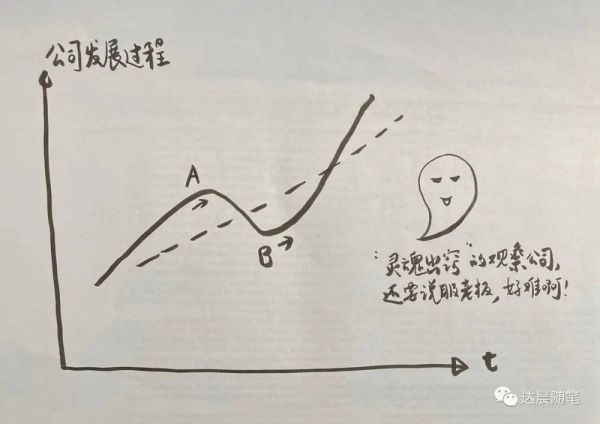 公司发展过程
A
B
"灵魂出窍"的观察公司,
还要说服老板,好难啊!
t
达晨随笔